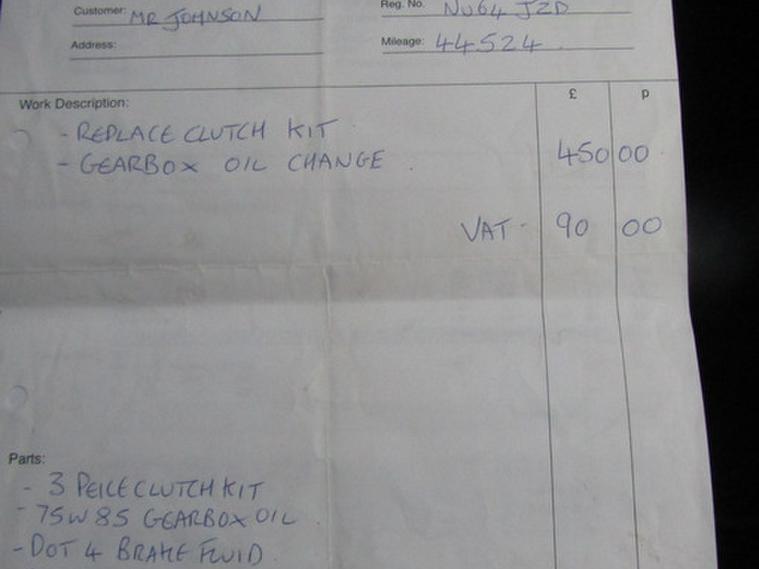 Customer: MR JOHNSON
Reg. No. NU64 JZD
Address:
Mileage: 44524
Work Description: £ p
- REPLACE CLUTCH KIT
- GEARBOX OIL CHANGE 450 00
VAT - 90 00
Parts:
- 3 PEICE CLUTCH KIT
- 75W85 GEARBOX OIL
- DOT 4 BRAKE FLUID